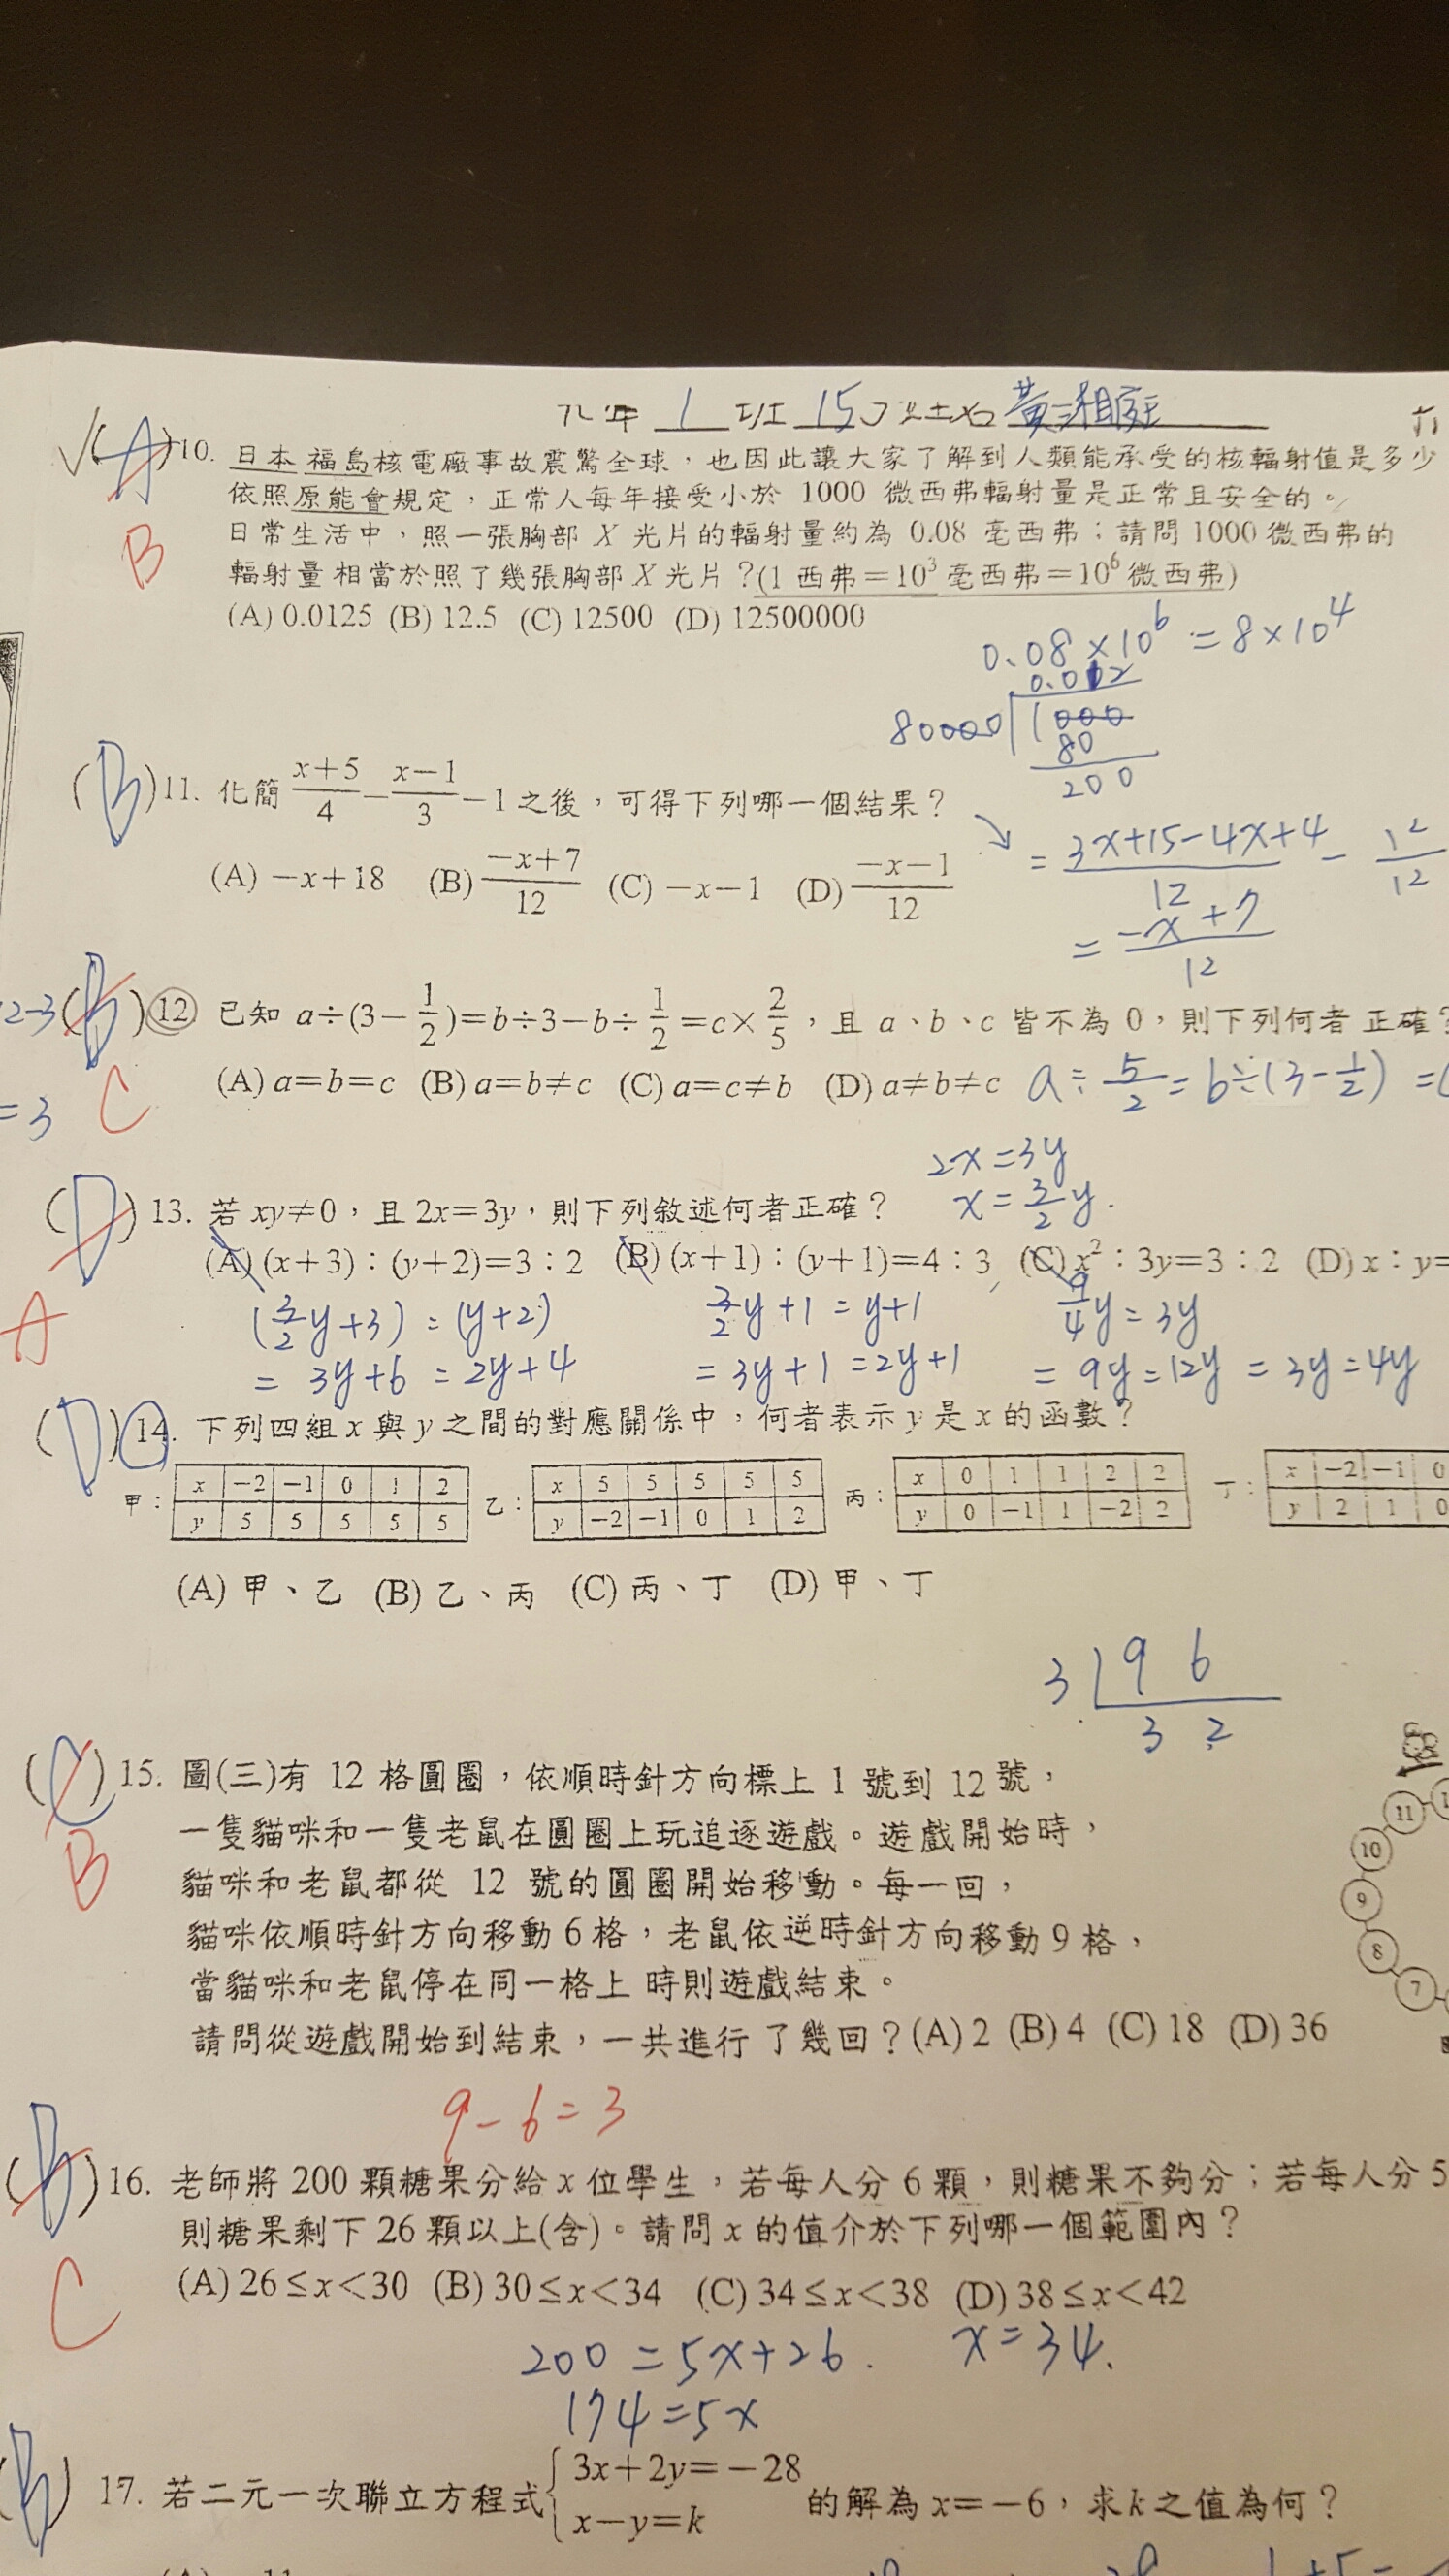 九年 1 班 15
√(A)10. 日本福島核電廠事故震驚全球，也因此讓大家了解到人類能承受的核輻射值是多少
B
依照原能會規定，正常人每年接受小於 1000 微西弗輻射量是正常且安全的。
日常生活中，照一張胸部 X 光片的輻射量約為 0.08 毫西弗；請問 1000 微西弗的
輻射量相當於照了幾張胸部 X 光片？(1 西弗＝10³ 毫西弗＝10⁶ 微西弗)
(A) 0.0125 (B) 12.5 (C) 12500 (D) 12500000
0.08×10⁶ = 8×10⁴
0.012
80000 1000
80
200
(B)11. 化簡 (x+5)/4 − (x−1)/3 −1 之後，可得下列哪一個結果？
(A) −x+18 (B) (−x+7)/12 (C) −x−1 (D) (−x−1)/12
= (3x+15-4x+4)/12 - 12/12
= (-x+7)/12
2-3
= 3
(B)12. 已知 a÷(3−1/2)=b÷3−b÷1/2=c×2/5，且 a、b、c 皆不為 0，則下列何者正確？
C
(A) a=b=c (B) a=b≠c (C) a=c≠b (D) a≠b≠c
a÷5/2 = b÷(3-1/2) =
2x=3y
x=3/2y.
(D)13. 若 xy≠0，且 2x=3y，則下列敘述何者正確？
A
(A) (x+3)：(y+2)=3：2 (B) (x+1)：(y+1)=4：3 (C) x²：3y=3：2 (D) x：y=
(3/2y+3) = (y+2)
= 3y+6 = 2y+4
3/2y+1 = y+1
= 3y+1 = 2y+1
9/4y = 3y
= 9y=12y = 3y=4y
(D)14. 下列四組 x 與 y 之間的對應關係中，何者表示 y 是 x 的函數？
甲： x −2 −1 0 1 2
y 5 5 5 5 5
乙： x 5 5 5 5 5
y −2 −1 0 1 2
丙： x 0 1 1 2 2
y 0 −1 1 −2 2
丁： x −2 −1 0
y 2 1 0
(A) 甲、乙 (B) 乙、丙 (C) 丙、丁 (D) 甲、丁
3 9 6
3 2
(C)15. 圖(三)有 12 格圓圈，依順時針方向標上 1 號到 12 號，
B
一隻貓咪和一隻老鼠在圓圈上玩追逐遊戲。遊戲開始時，
貓咪和老鼠都從 12 號的圓圈開始移動。每一回，
貓咪依順時針方向移動 6 格，老鼠依逆時針方向移動 9 格，
當貓咪和老鼠停在同一格上時則遊戲結束。
請問從遊戲開始到結束，一共進行了幾回？(A) 2 (B) 4 (C) 18 (D) 36
11
10
9
8
7
9-6=3
(B)16. 老師將 200 顆糖果分給 x 位學生，若每人分 6 顆，則糖果不夠分；若每人分 5
C
則糖果剩下 26 顆以上(含)。請問 x 的值介於下列哪一個範圍內？
(A) 26≤x<30 (B) 30≤x<34 (C) 34≤x<38 (D) 38≤x<42
200 = 5x+26. x=34.
174=5x
(B) 17. 若二元一次聯立方程式 {3x+2y=−28 x−y=k 的解為 x=−6，求 k 之值為何？